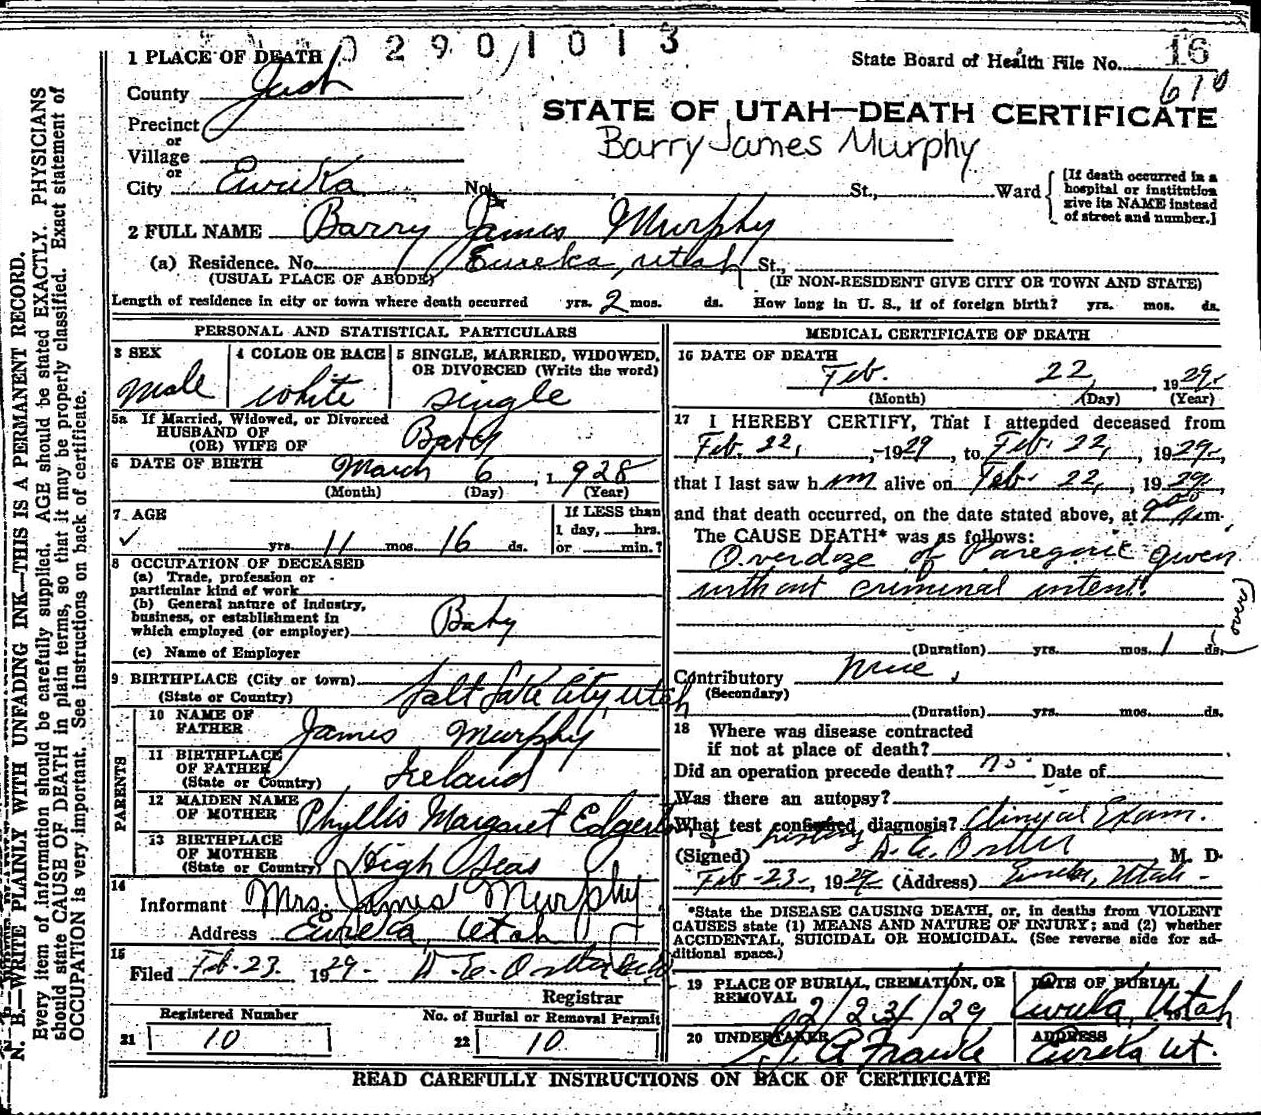 0 2 9 0 1 0 1 3
1 PLACE OF DEATH
State Board of Health File No. 16
610
County Juab
STATE OF UTAH—DEATH CERTIFICATE
Precinct
or
Barry James Murphy
Village
or
City Eureka No. St., Ward
[If death occurred in a
hospital or institution
give its NAME instead
of street and number.]
2 FULL NAME Barry James Murphy
(a) Residence. No. Eureka, Utah St.,
(USUAL PLACE OF ABODE) (IF NON-RESIDENT GIVE CITY OR TOWN AND STATE)
Length of residence in city or town where death occurred yrs. 2 mos. ds. How long in U. S., if of foreign birth? yrs. mos. ds.
PERSONAL AND STATISTICAL PARTICULARS
3 SEX
Male
4 COLOR OR RACE
white
5 SINGLE, MARRIED, WIDOWED,
OR DIVORCED (Write the word)
single
5a If Married, Widowed, or Divorced
HUSBAND OF
(OR) WIFE OF Baby
6 DATE OF BIRTH March 6, 1928
(Month) (Day) (Year)
7 AGE
yrs. 11 mos. 16 ds.
If LESS than
1 day, hrs.
or min.?
8 OCCUPATION OF DECEASED
(a) Trade, profession or
particular kind of work
(b) General nature of industry,
business, or establishment in
which employed (or employer) Baby
(c) Name of Employer
9 BIRTHPLACE (City or town)
(State or Country) Salt Lake City, Utah
PARENTS
10 NAME OF
FATHER James Murphy
11 BIRTHPLACE
OF FATHER
(State or Country) Ireland
12 MAIDEN NAME
OF MOTHER Phyllis Margaret
13 BIRTHPLACE
OF MOTHER
(State or Country) High Seas
14
Informant Mrs. James Murphy
Address Eureka, Utah
15
Filed Feb. 23. 1929.
Registrar
Registered Number
21 10
No. of Burial or Removal Permit
22 10
MEDICAL CERTIFICATE OF DEATH
16 DATE OF DEATH
Feb. 22, 1929.
(Month) (Day) (Year)
17 I HEREBY CERTIFY, That I attended deceased from
Feb. 22, 1929, to Feb. 22, 1929,
that I last saw h im alive on Feb. 22, 1929,
and that death occurred, on the date stated above, at m.
The CAUSE DEATH* was as follows:
Overdoze of Paregoric given
without criminal intent.
(over)
(Duration) yrs. mos. 1 ds.
Contributory None.
(Secondary)
(Duration) yrs. mos. ds.
18 Where was disease contracted
if not at place of death?
Did an operation precede death? no. Date of
Was there an autopsy?
What test confirmed diagnosis? Clinical Exam.
& history
(Signed) M. D.
Feb-23-, 1929 (Address) Eureka, Utah-
*State the DISEASE CAUSING DEATH, or, in deaths from VIOLENT
CAUSES state (1) MEANS AND NATURE OF INJURY; and (2) whether
ACCIDENTAL, SUICIDAL OR HOMICIDAL. (See reverse side for ad-
ditional space.)
19 PLACE OF BURIAL, CREMATION, OR
REMOVAL 2/23/29
DATE OF BURIAL
Eureka, Utah
20 UNDERTAKER
ADDRESS
Eureka Ut.
READ CAREFULLY INSTRUCTIONS ON BACK OF CERTIFICATE
N. B.—WRITE PLAINLY WITH UNFADING INK—THIS IS A PERMANENT RECORD.
Every item of information should be carefully supplied. AGE should be stated EXACTLY. PHYSICIANS
should state CAUSE OF DEATH in plain terms, so that it may be properly classified. Exact statement of
OCCUPATION is very important. See instructions on back of certificate.